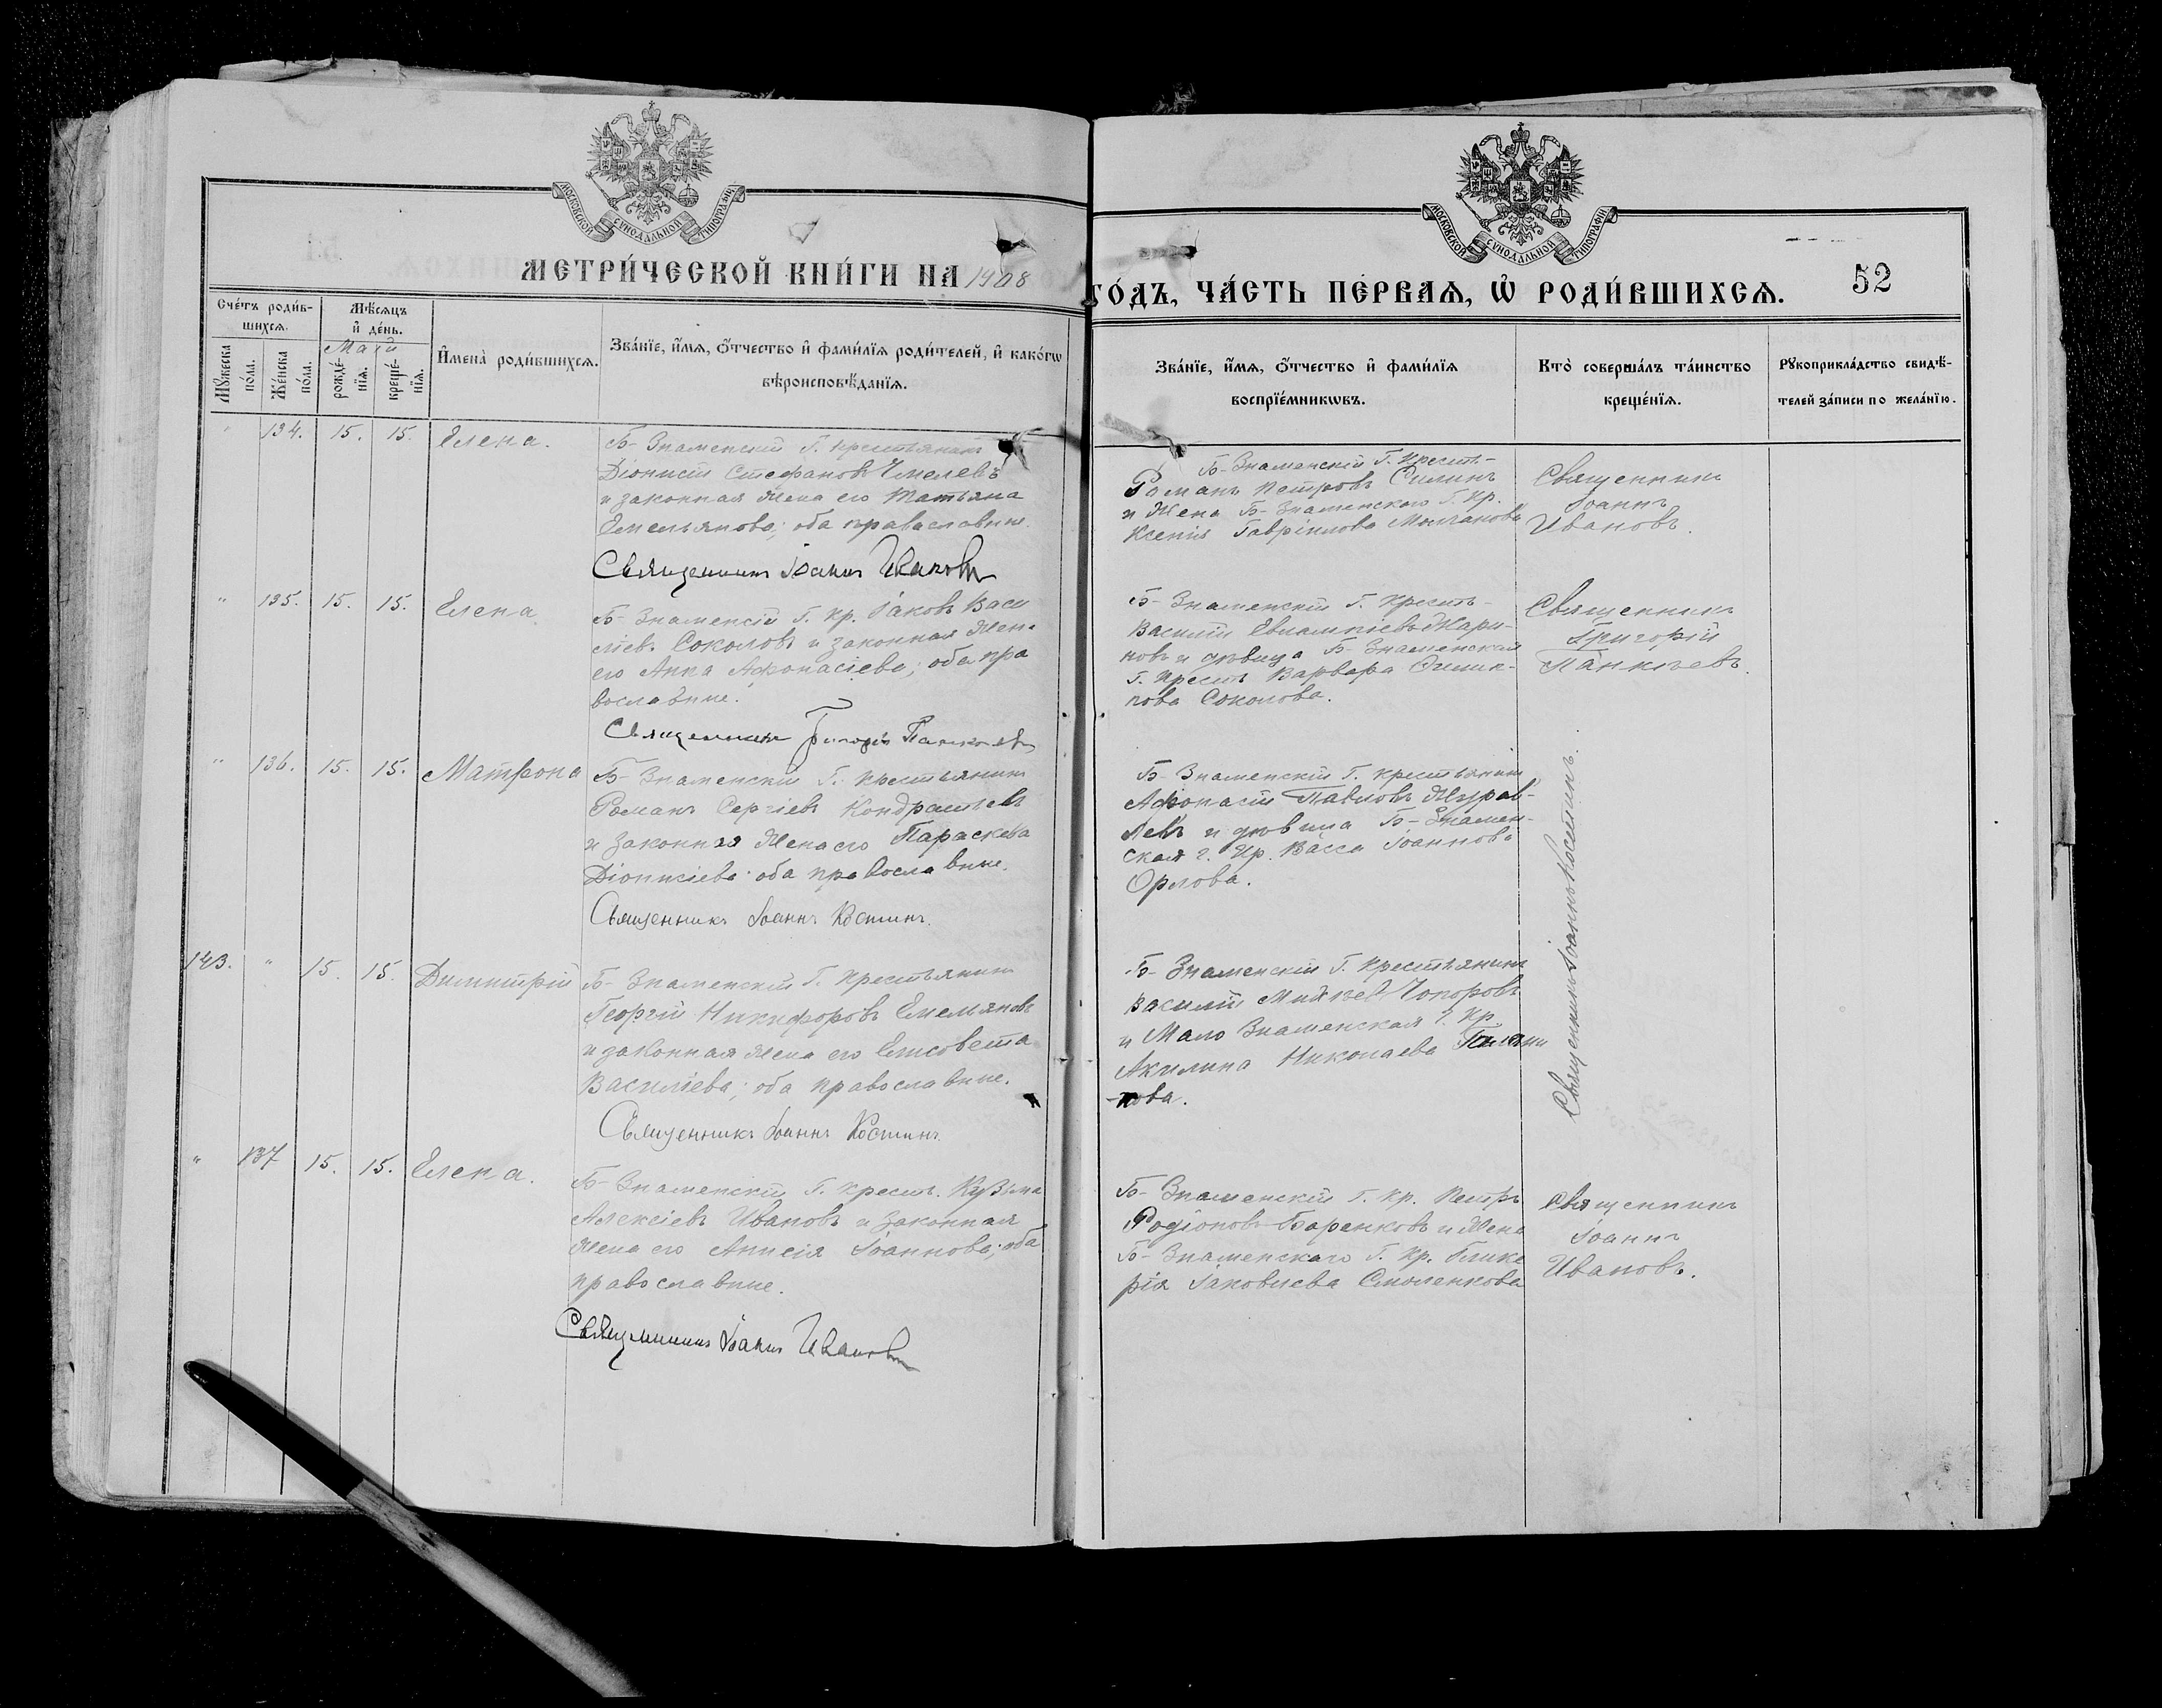 МОСКОВСКОЙ СУНОДАЛЬНОЙ ТИПОГРАФІИ
МОСКОВСКОЙ СУНОДАЛЬНОЙ ТИПОГРАФІИ
МЕТРИ́ЧЕСКОЙ КНИ́ГИ НА 1908
ГО́ДЪ, ЧА́СТЬ ПЕ́РВАЯ, Ѡ҆ РОДИ́ВШИХСЯ.
52
Сче́тъ роди́в-
шихся.
Мѣсяцъ
и҆ де́нь.
Май
Мꙋжеска
по́ла.
Же́нска
по́ла.
рожде́-
нїя.
креще́-
нїя.
И҆мена̀ роди́вшихся.
Зва́нїе, и҆́мя, ѻ҆́тчество и҆ фами́лїя роди́телей, и҆ како́гѡ
вѣроисповѣ́данїя.
Зва́нїе, и҆́мя, ѻ҆́тчество и҆ фами́лїя
воспрїе́мникѡвъ.
Кто̀ соверша́лъ та́инство
креще́нїя.
Рꙋкоприкла́дство свидѣ́-
телей за́писи по жела́нїю.
" 134. 15. 15. Елена.
Б-Знаменскій Г. крестьянинъ
Діонисій Стефановъ Чмелевъ
и законная жена его Татьяна
Емельянова; оба православные.
Священникъ Іоаннъ Ивановъ
Б-Знаменскій Г. Крест-
Романъ Петровъ Силинъ
и жена Б-Знаменскаго Г. Кр.
Ксенія Гавріилова
Священникъ
Іоаннъ
Ивановъ.
" 135. 15. 15. Елена.
Б-Знаменскій Г. Кр. Іаковъ Васи
ліевъ Соколовъ и законная жена
его Анна Афонасіева; оба пра
вославные.
Священникъ Григорій Панкьевъ
Б-Знаменскій Г. Крест-
Василій
новъ и дѣвица Б-Знаменская
Г. Крест. Варвара
пова Соколова.
Священникъ
Григорій
Панкьевъ.
" 136. 15. 15. Матрона
Б-Знаменскій Г. Крестьянинъ
Романъ Сергіевъ Кондрашевъ
и законная жена его Параскева
Діонисіева; оба православные.
Священникъ Іоаннъ Костинъ.
Б-Знаменскій Г. Крестьянинъ
Афонасій Павловъ Журав-
левъ и дѣвица Б-Знамен-
ская Г. Кр. Васса Іоаннова
Орлова.
Священникъ Іоаннъ Костинъ.
143. " 15. 15. Димитрій
Б-Знаменскій Г. Крестьянинъ
Георгій Никифоровъ Емельяновъ
и законная жена его Елисовета
Василіева; оба православные.
Священникъ Іоаннъ Костинъ
Б-Знаменскій Г. Крестьянинъ
Василій Чопоровъ
и Мало Знаменская Г. Кр.
Акилина Николаева
нова.
" 137 15. 15. Елена.
Б-Знаменскій Г. Крест. Кузьма
Алексіевъ Ивановъ и законная
жена его Анисія Іоаннова; оба
православные.
Священникъ Іоаннъ Ивановъ
Б-Знаменскій Г. Кр. Петръ
Родіоновъ Баренковъ и жена
Б-Знаменскаго Г. Кр. Глике
рія Іаковлева Смоленкова
Священникъ
Іоаннъ
Ивановъ.